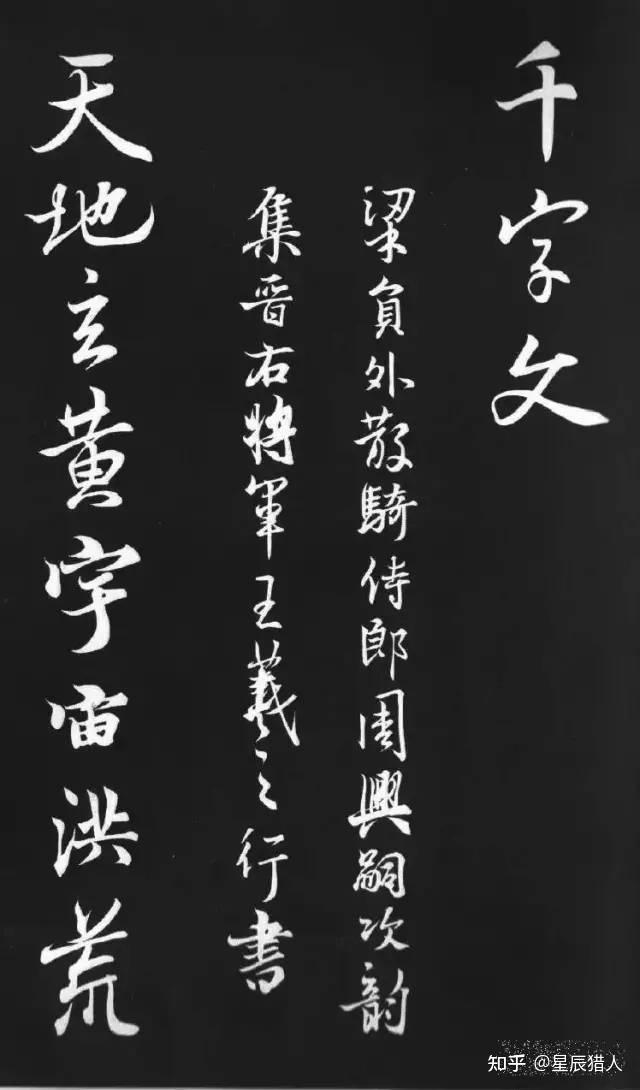 千字文
梁員外散騎侍郎周興嗣次韵
集晋右將軍王羲之行書
天地玄黄宇宙洪荒
知乎 @星辰猎人